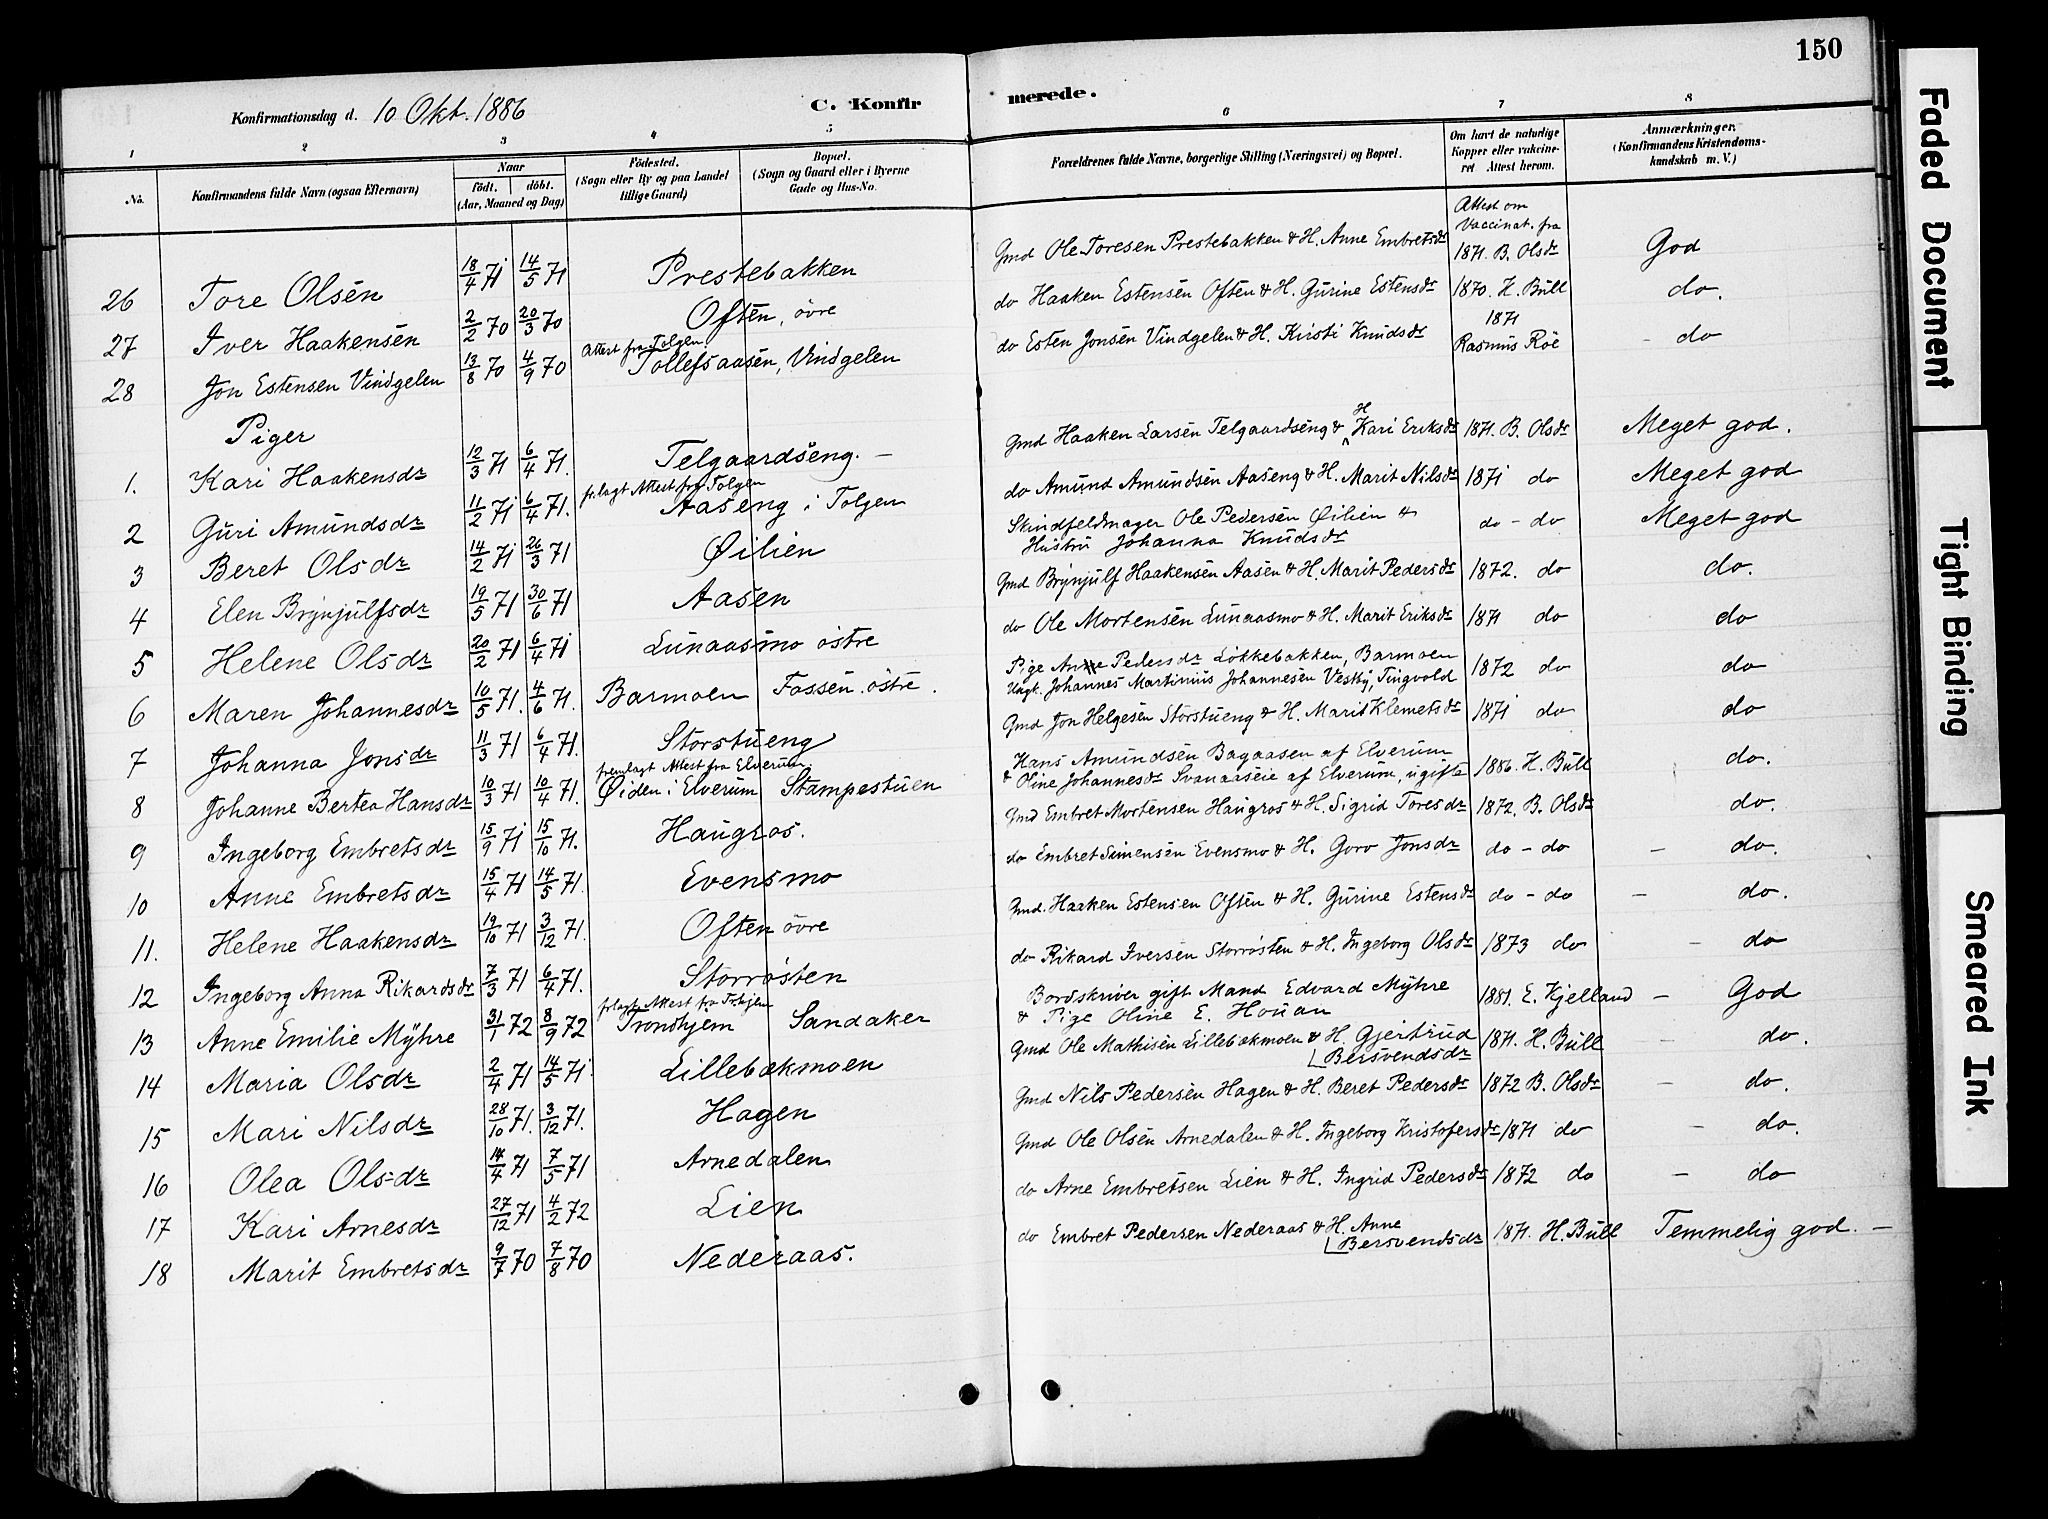 150
Konfirmationsdag d. 10 Okt. 1886
C. Konfir
merede.
1 2 3 4 5 6 7 8
No.
Konfirmandens fulde Navn (ogsaa Efternavn)
Naar
födt. döbt.
(Aar, Maaned og Dag)
Födested.
(Sogn eller By og paa Landet
tillige Gaard)
Bopæl.
(Sogn og Gaard eller i Byerne
Gade og Hus-No.
Forældrenes fulde Navne, borgerlige Stilling (Næringsvei) og Bopæl.
Om havt de naturlige
Kopper eller vakcine-
ret Attest herom.
Anmærkninger.
(Konfirmandens Kristendoms-
kundskab m. V.)
Attest om
Vaccinat. fra
26 Tore Olsen 18/4 71 14/5 71 Prestebakken Gmd Ole Toresen Prestebakken & H. Anne Embretsdr 1871. B. Olsdr God
27 Iver Haakensen 2/2 70 20/3 70 Often, övre do Haaken Estensen Often & H. Gurine Estensdr 1870. H. Bull do.
Attest fra Tolgen.
28 Jon Estensen Vindgelen 13/8 70 4/9 70 Tollefsaasen, Vindgelen do Esten Jonsen Vindgelen & H. Kirsti Knudsdr 1871 Rasmus Röe - do
Piger
1. Kari Haakensdr 12/3 71 6/4 71. Telgaardseng. - Gmd Haaken Larsen Telgaardseng & H Kari Eriksdr 1871. B. Olsdr Meget god.
fr.lagt Attest fra Tolgen
2 Guri Amundsdr 11/2 71 6/4 71. Aaseng i Tolgen do Amund Amundsen Aaseng & H. Marit Nilsdr 1871 do Meget god
3 Beret Olsdr 14/2 71 26/3 71 Øilien Skindfeldmager Ole Pedersen Øilien &
Hustru Johanna Knudsdr do - do Meget god
4 Elen Brynjulfsdr 19/5 71 30/6 71 Aasen Gmd Brynjulf Haakensen Aasen & H. Marit Pedersdr 1872. do do.
5 Helene Olsdr 20/2 71 6/4 71 Lunaasmo östre do Ole Mortensen Lunaasmo & H. Marit Eriksdr 1871 do do
6 Maren Johannesdr 10/5 71. 4/6 71. Barmoen Fossen östre. Pige Anne Pedersdr Lökkebakken, Barmoen
Ungk. Johannes Martinius Johannesen Vestby, Tingvold 1872 do do
7 Johanna Jonsdr 11/3 71 6/4 71. Storstueng Gmd Jon Helgesen Storstueng & H. Marit Klemetsdr 1871 do do
fremlagt Attest fra Elverum.
8 Johanne Bertea Hansdr 10/3 71 10/4 71. Øiden i Elverum Stampestuen Hans Amundsen Bagaasen af Elverum
& Oline Johannesdr Svanaaseie af Elverum, ugifte 1886. H. Bull do.
9 Ingeborg Embretsdr 15/9 71 15/10 71. Haugros. Gmd Embret Mortensen Haugros & H. Sigrid Toresdr 1872. B. Olsdr do.
10 Anne Embretsdr 15/4 71 14/5 71. Evensmo do Embret Simensen Evensmo & H. Goro Jonsdr do - do - do.
11. Helene Haakensdr 19/10 71 3/12 71. Often övre Gmd. Haaken Estensen Often & H. Gurine Estensdr do - do - do.
12 Ingeborg Anna Rikardsdr 7/3 71 6/4 71. Storrösten do Rikard Iversen Storrösten & H. Ingeborg Olsdr 1873 do - do
fr.lagt Attest fra Trhjem
13 Anne Emilie Myhre 31/1 72 8/9 72 Trondhjem Sandaker Bordskriver gift Mand Edvard Myhre
& Pige Oline E. Houan 1881. E. Kjelland - God
14 Maria Olsdr 2/4 71 14/5 71 Lillebækmoen Gmd Ole Mathisen Lillebækmoen & H. Gjertrud
Bersvendsdr 1871. H. Bull - do.
15 Mari Nilsdr 28/10 71. 3/12 71. Hagen Gmd Nils Pedersen Hagen & H. Beret Pedersdr 1872 B. Olsdr - do.
16 Olea Olsdr 14/4 71 7/5 71 Arnedalen Gmd Ole Olsen Arnedalen & H. Ingeborg Kristofersdr 1871 do - do.
17 Kari Arnesdr 27/12 71 4/2 72 Lien do Arne Embretsen Lien & H. Ingrid Pedersdr 1872 do - do
18 Marit Embretsdr 9/7 70 7/8 70 Nederaas. do Embret Pedersen Nederaas & H. Anne
Bersvendsdr 1871. H. Bull Temmelig god. -
Faded Document
Tight Binding
Smeared Ink